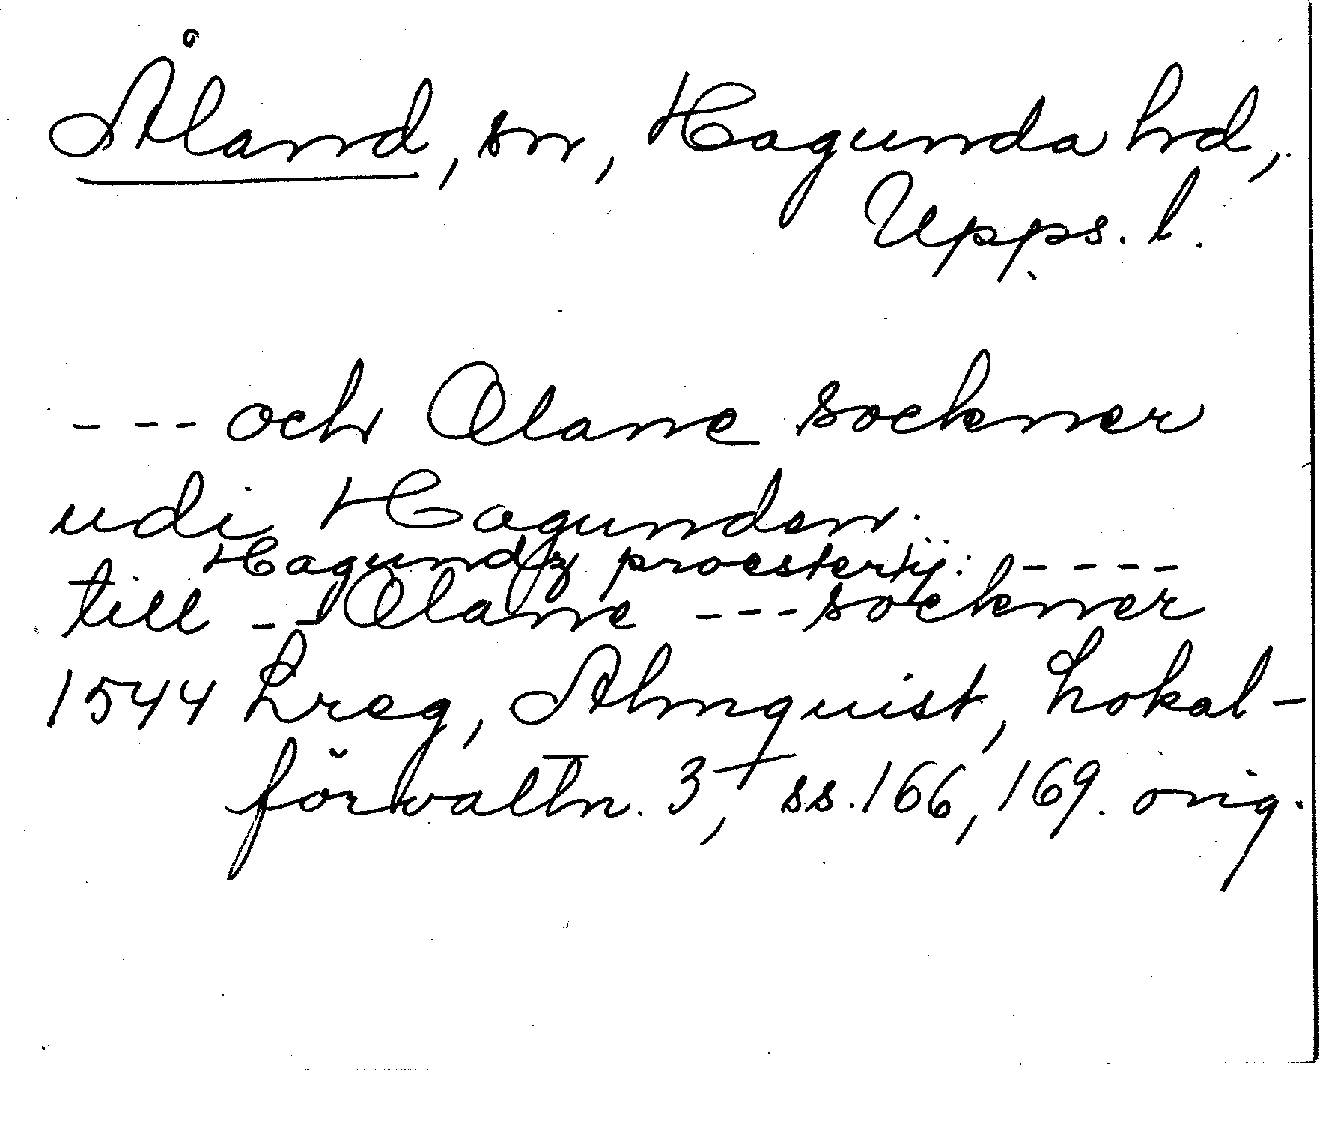 Åland, sn, Hagunda hd,
Upps. l.
--- och Olane sockner
udi Hagunden.
Hagundz proesterij: ----
till -- Olane --- sockner
1544 Lreg, Almquist, Lokal-
förvaltn. 3, ss. 166, 169. orig.